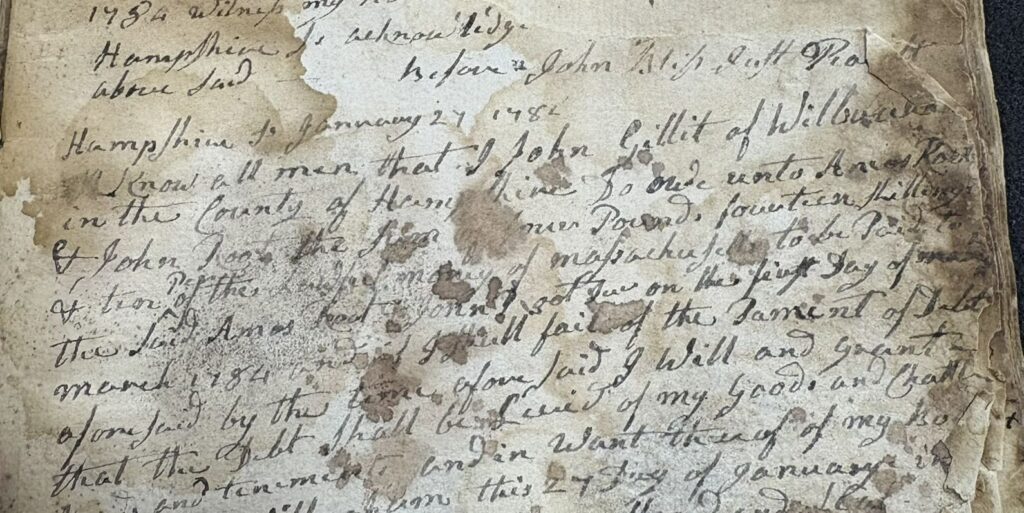 1784 Witness my
Hampshire Ss acknowledge
above Said Before John Bliss Just Pea
Hampshire Ss January 27 178
Know all men that I John Gillit of Wilbraham
in the County of Hampshire Do owe unto Amos Root
& John Root the Sum Pounds fourteen Shillings
& of the money of massachusetts to be Paid to
the Said Amos Root & John Root on the first Day of
march 1784 and if I Shall fail of the Pament of Debt
aforeSaid by the time aforeSaid I Will and grant
that the Debt Shall be Levied of my Goods and Chattl
and tenements and in Want thereof of my Bo
this 27 Day of January